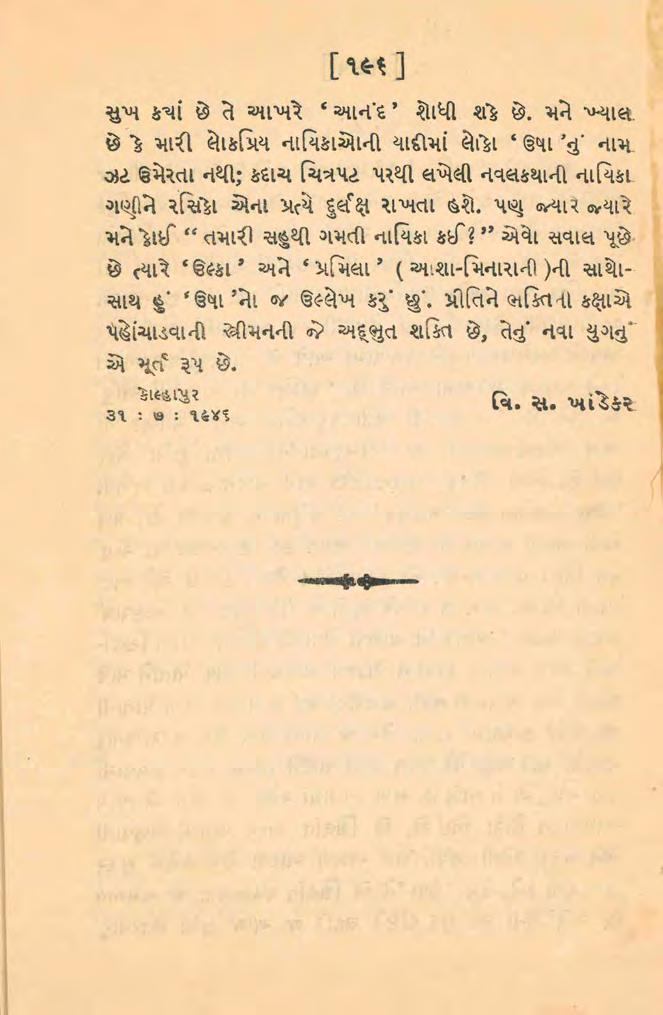 [ ૧૯૬ ]
સુખ ક્યાં છે તે આખરે ‘ આનંદ ’ શોધી શકે છે. મને ખ્યાલ
છે કે મારી લોકપ્રિય નાયિકાઓની યાદીમાં લોકો ‘ ઉષા ’નું નામ
ઝટ ઉમેરતા નથી; કદાચ ચિત્રપટ પરથી લખેલી નવલકથાની નાયિકા
ગણીને રસિકો એના પ્રત્યે દુર્લક્ષ રાખતા હશે. પણ જ્યારે જ્યારે
મને કોઈ “ તમારી સહુથી ગમતી નાયિકા કઈ ? ” એવો સવાલ પૂછે
છે ત્યારે ‘ઉલ્કા ’ અને ‘ પ્રમિલા ’ ( આશા-મિનારાની )ની સાથો-
સાથ હું ‘ઉષા ’નો જ ઉલ્લેખ કરું છું. પ્રીતિને ભક્તિની કક્ષાએ
પહોંચાડવાની સ્ત્રીમનની જે અદ્ભુત શક્તિ છે, તેનું નવા યુગનું
એ મૂર્ત રૂપ છે.
કોલ્હાપુર
૩૧ : ૭ : ૧૯૪૬
વિ. સ. ખાંડેકર